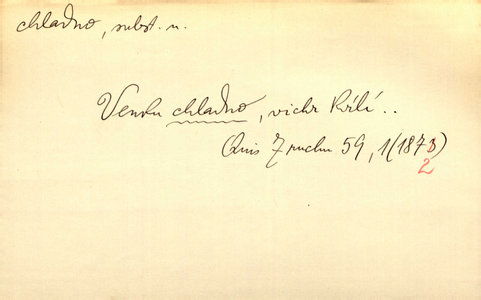 chladno, subst. n.
Venku chladno, vichr kvílí . .
Quis Z ruchu 59, 1 (1873)
2